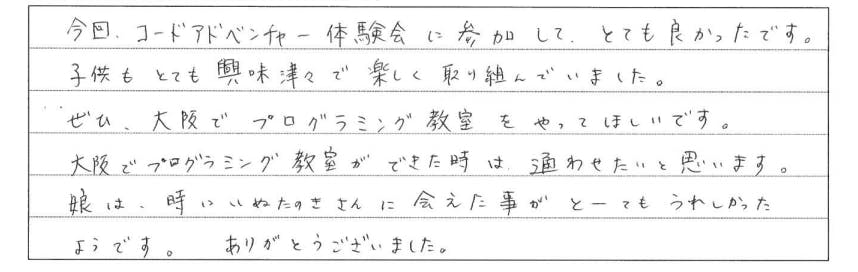 今回、コードアドベンチャー体験会に参加して、とても良かったです。
子供もとても興味津々で楽しく取り組んでいました。
ぜひ、大阪でプログラミング教室をやってほしいです。
大阪でプログラミング教室ができた時は、通わせたいと思います。
娘は、時にいぬたぬきさんに会えた事がとーてもうれしかった
ようです。 ありがとうございました。